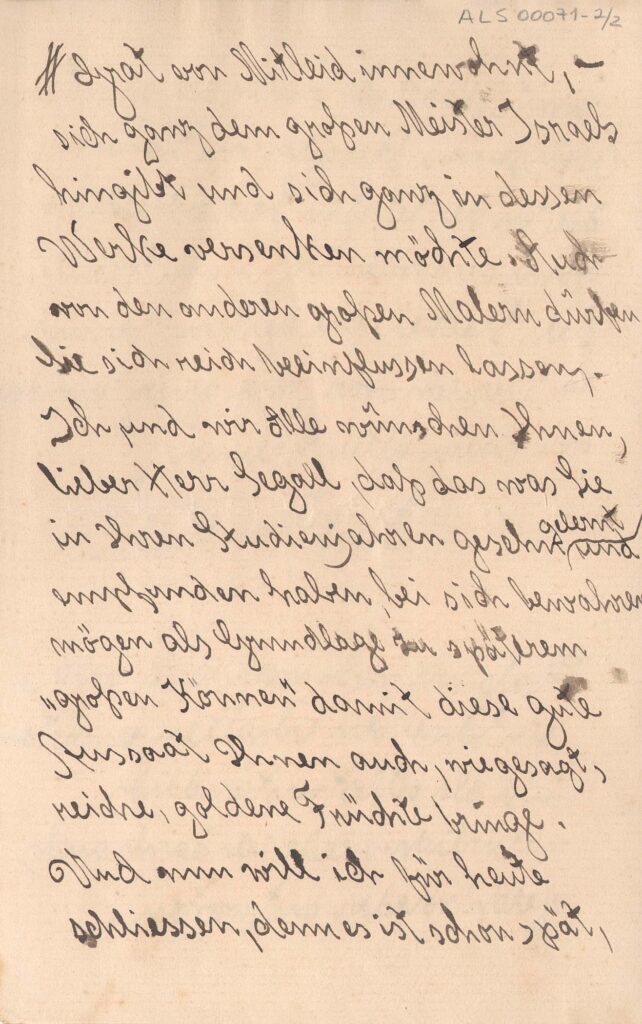 ALS 00071-2/2
von Mitleid innewohnt, –
sich ganz dem großen Meister Israels
hingibt und sich ganz in dessen
Werke versenken möchte. Auch
von den anderen großen Malern dürfen
Sie sich reich beeinflussen lassen.
Ich und wir alle wünschen Ihnen,
lieber Herr Segall, daß das was Sie
in Ihren Studienjahren gesehn, gelernt und
empfunden haben, bei sich bewahren
mögen als Grundlage zu späterem
"großen Können" damit diese gute
Aussaat Ihnen auch, wie gesagt,
reiche, goldene Früchte bringe.
Und nun will ich für heute
schliessen, denn es ist schon spät,